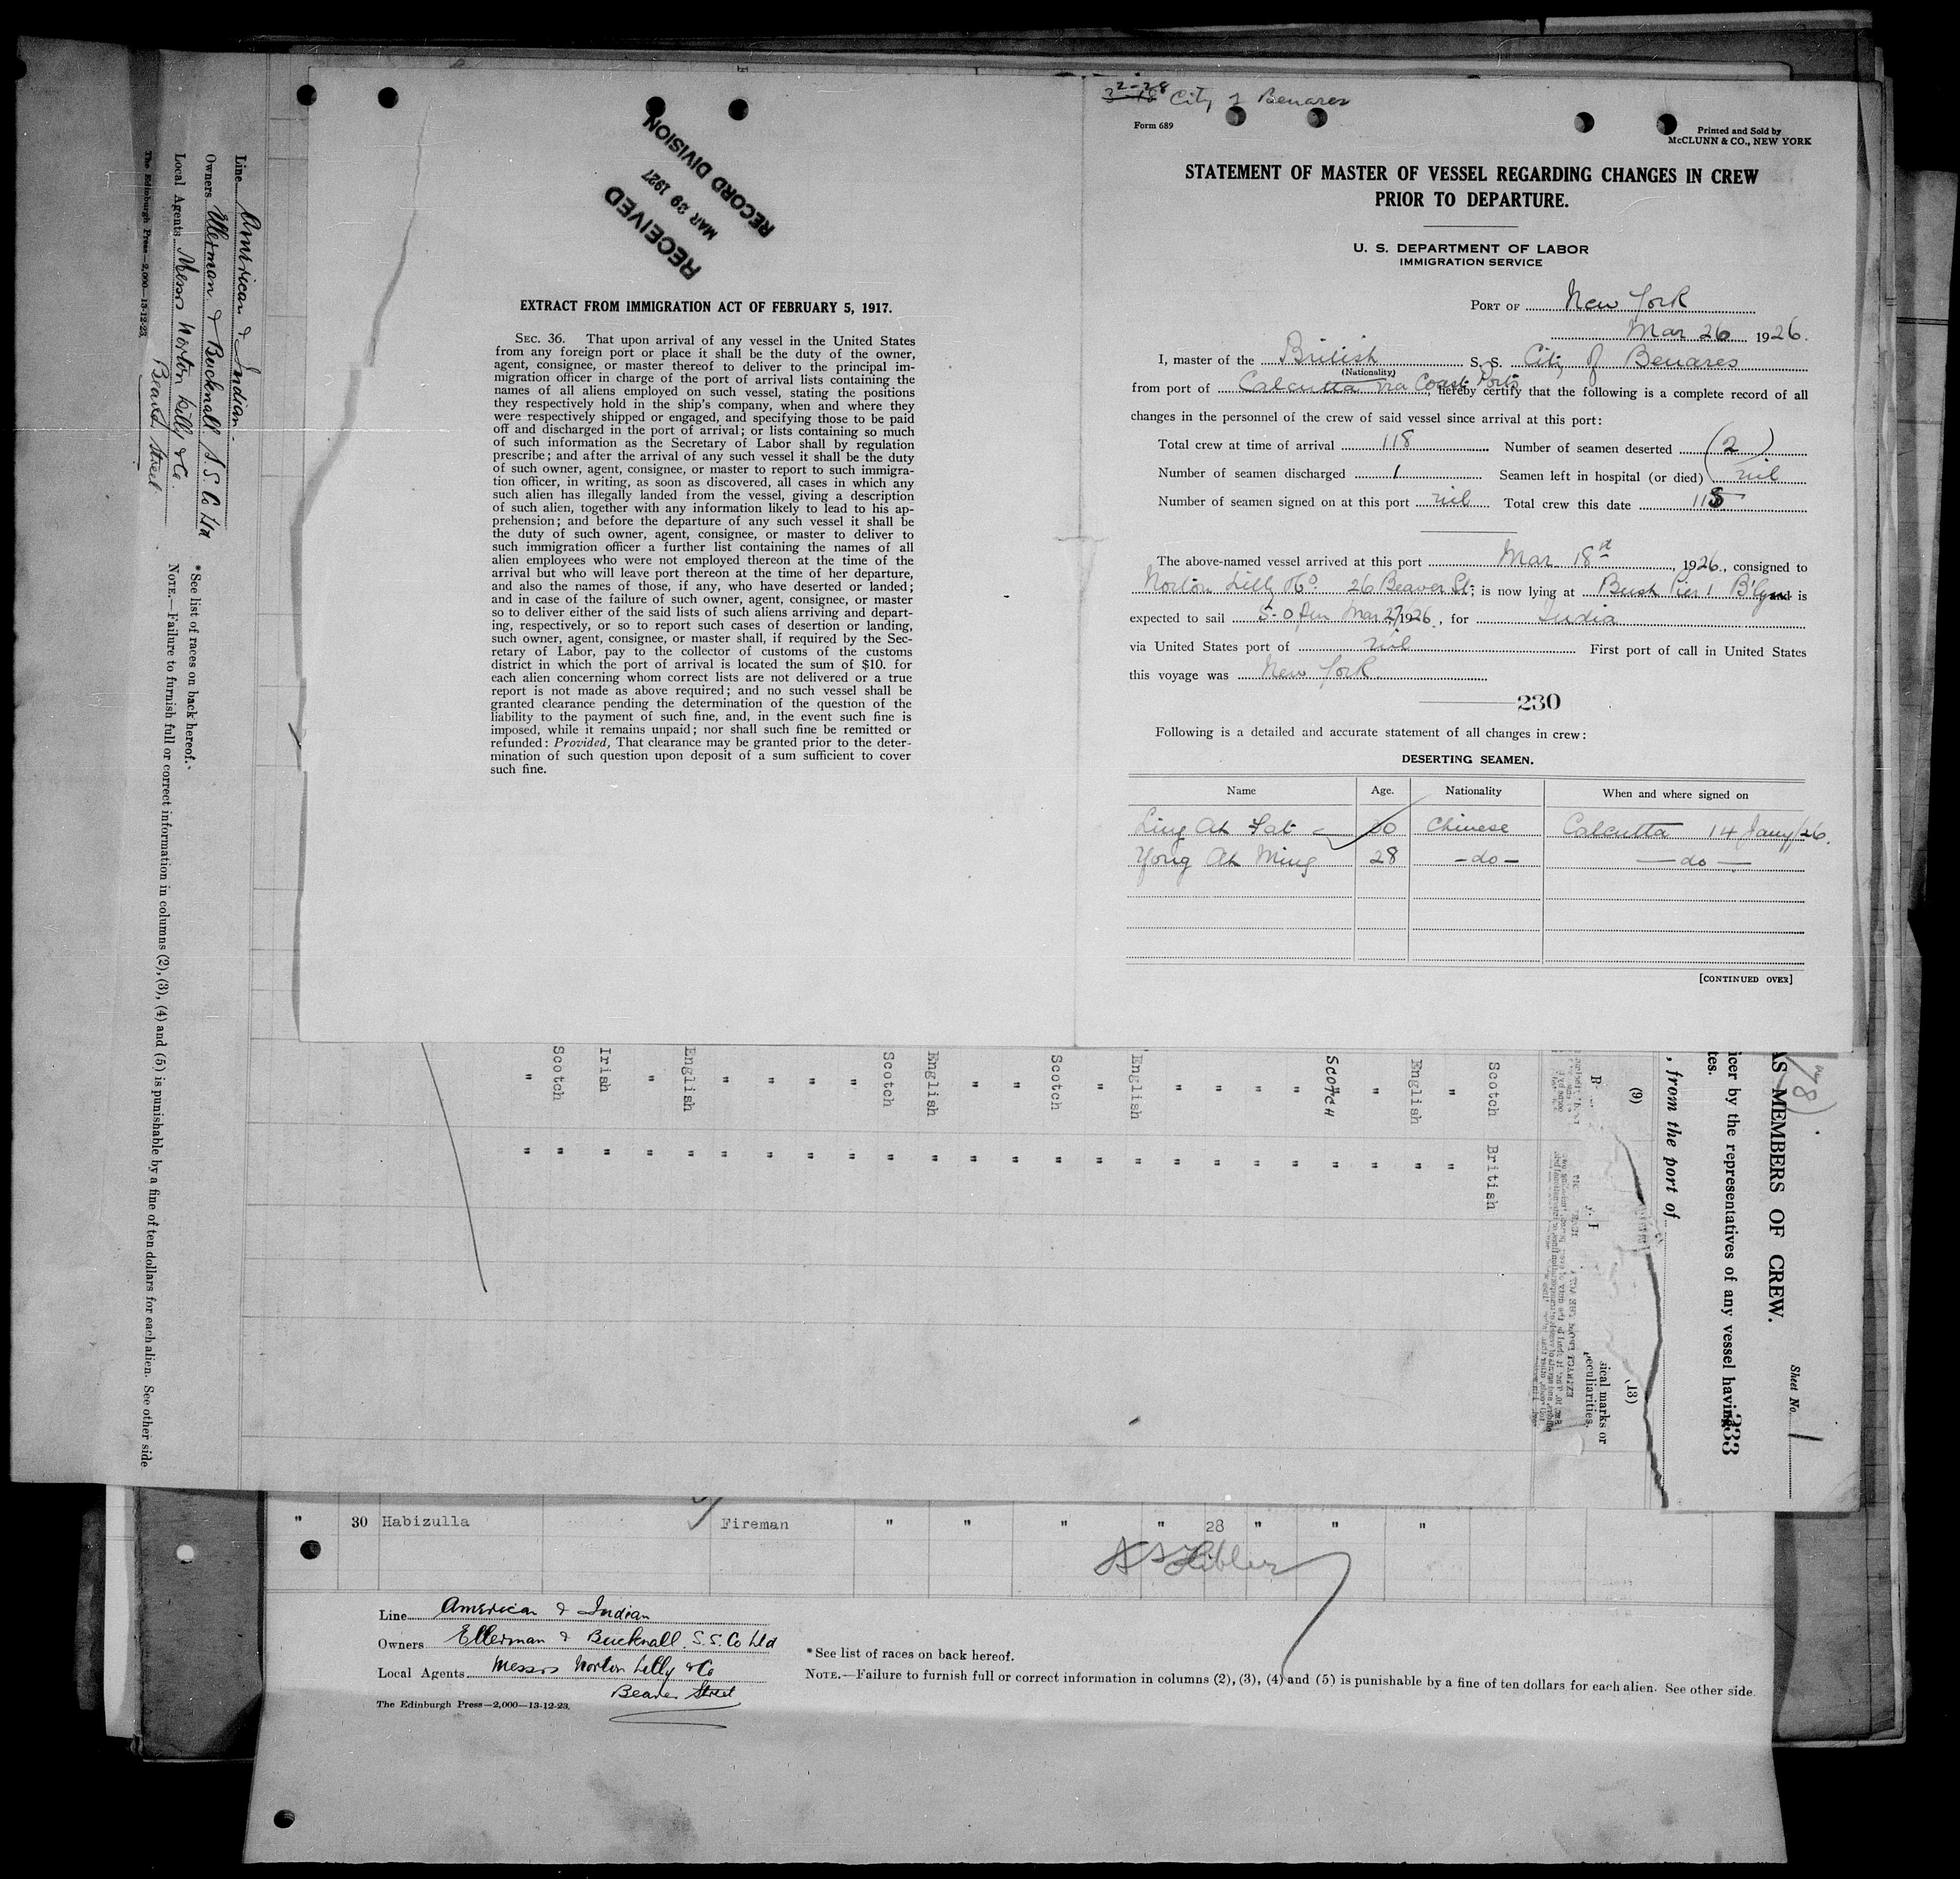 2-28
City of Benares
Form 689
Printed and Sold by
McCLUNN & CO., NEW YORK
STATEMENT OF MASTER OF VESSEL REGARDING CHANGES IN CREW
PRIOR TO DEPARTURE.
U. S. DEPARTMENT OF LABOR
IMMIGRATION SERVICE
PORT OF New York
Mar 26 1926.
I, master of the British S. S. City of Benares
(Nationality)
from port of Calcutta via Coast Ports, hereby certify that the following is a complete record of all
changes in the personnel of the crew of said vessel since arrival at this port:
Total crew at time of arrival 118 Number of seamen deserted (2)
Number of seamen discharged 1 Seamen left in hospital (or died) nil
Number of seamen signed on at this port nil Total crew this date 115
The above-named vessel arrived at this port Mar 18st, 1926, consigned to
Norton Lilly & Co. 26 Beaver St; is now lying at Bush Pier 1 B'lyn and is
expected to sail 5-0 pm Mar 27/1926, for India
via United States port of nil First port of call in United States
this voyage was New York
230
Following is a detailed and accurate statement of all changes in crew:
DESERTING SEAMEN.
Name Age. Nationality When and where signed on
Ling Ah Fat 30 Chinese Calcutta 14 Jany/26.
Yong Ah Ming 28 -do- -do-
[CONTINUED OVER]
RECEIVED
MAR 29 1927
RECORD DIVISION
EXTRACT FROM IMMIGRATION ACT OF FEBRUARY 5, 1917.
SEC. 36. That upon arrival of any vessel in the United States
from any foreign port or place it shall be the duty of the owner,
agent, consignee, or master thereof to deliver to the principal im-
migration officer in charge of the port of arrival lists containing the
names of all aliens employed on such vessel, stating the positions
they respectively hold in the ship's company, when and where they
were respectively shipped or engaged, and specifying those to be paid
off and discharged in the port of arrival; or lists containing so much
of such information as the Secretary of Labor shall by regulation
prescribe; and after the arrival of any such vessel it shall be the duty
of such owner, agent, consignee, or master to report to such immigra-
tion officer, in writing, as soon as discovered, all cases in which any
such alien has illegally landed from the vessel, giving a description
of such alien, together with any information likely to lead to his ap-
prehension; and before the departure of any such vessel it shall be
the duty of such owner, agent, consignee, or master to deliver to
such immigration officer a further list containing the names of all
alien employees who were not employed thereon at the time of the
arrival but who will leave port thereon at the time of her departure,
and also the names of those, if any, who have deserted or landed;
and in case of the failure of such owner, agent, consignee, or master
so to deliver either of the said lists of such aliens arriving and depart-
ing, respectively, or so to report such cases of desertion or landing,
such owner, agent, consignee, or master shall, if required by the Sec-
retary of Labor, pay to the collector of customs of the customs
district in which the port of arrival is located the sum of $10. for
each alien concerning whom correct lists are not delivered or a true
report is not made as above required; and no such vessel shall be
granted clearance pending the determination of the question of the
liability to the payment of such fine, and, in the event such fine is
imposed, while it remains unpaid; nor shall such fine be remitted or
refunded: Provided, That clearance may be granted prior to the deter-
mination of such question upon deposit of a sum sufficient to cover
such fine.
Sheet No. 1
AS MEMBERS OF CREW.
icer by the representatives of any vessel having
tes.
233
, from the port of
(9)
(13)
sical marks or
peculiarities.
Scotch British
" "
English "
" "
SCOTCH "
" "
" "
" "
" "
English "
" "
Scotch "
" "
" "
English "
Scotch "
" "
" "
" "
" "
English "
" "
Irish "
Scotch "
" "
Line American & Indian
Owners Ellerman & Bucknall S.S. Co Ltd
Local Agents Messrs Norton Lilly & Co.
Beaver Street
The Edinburgh Press—2,000—13-12-23.
*See list of races on back hereof.
NOTE.—Failure to furnish full or correct information in columns (2), (3), (4) and (5) is punishable by a fine of ten dollars for each alien. See other side
" 30 Habizulla Fireman " " " " 28 " " "
Line American & Indian
Owners Ellerman & Bucknall S.S. Co Ltd
Local Agents Messrs Norton Lilly & Co
Beaver Street
The Edinburgh Press—2,000—13-12-23.
*See list of races on back hereof.
NOTE.—Failure to furnish full or correct information in columns (2), (3), (4) and (5) is punishable by a fine of ten dollars for each alien. See other side.